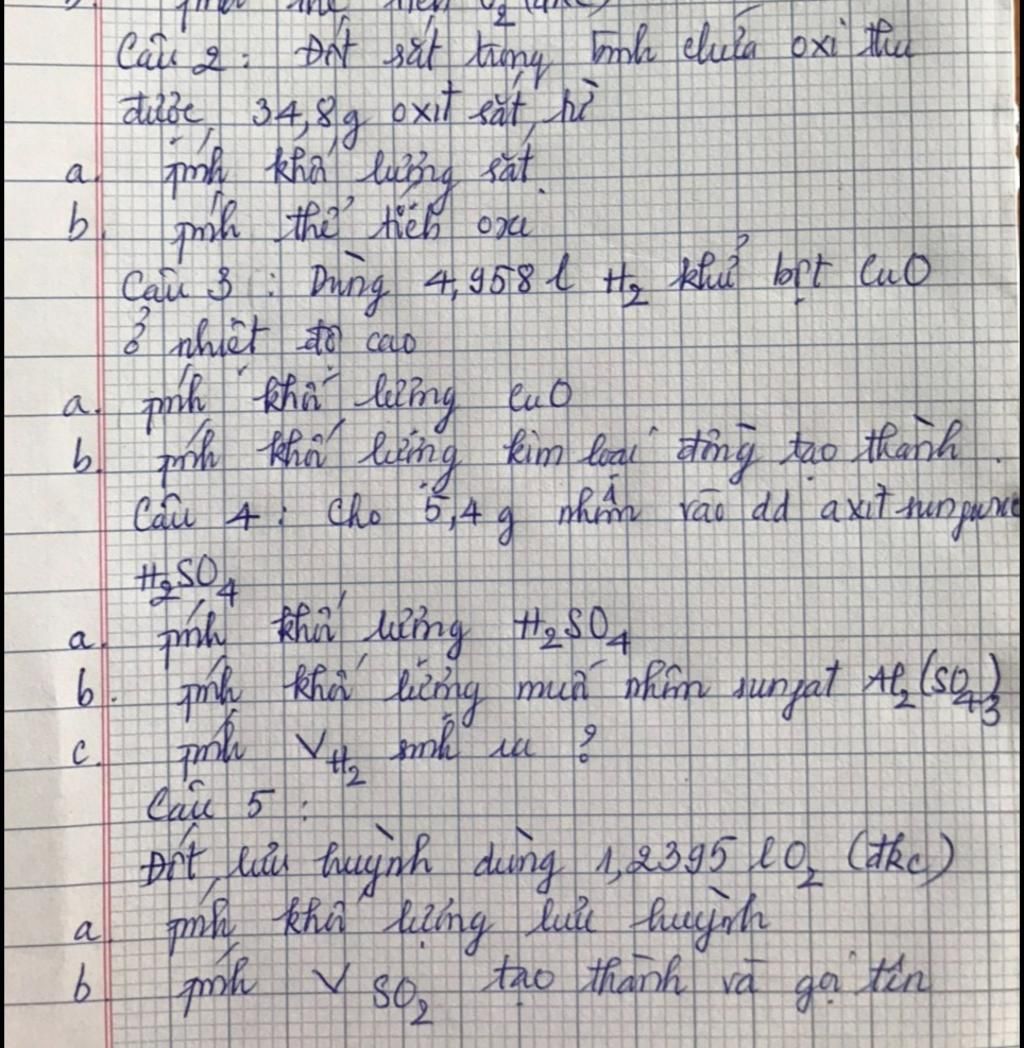 Câu 2 : Đốt sắt trong bình chứa oxi thu
được 34,8g oxit sắt từ
a. Tính khối lượng sắt.
b. Tính thể tích oxi
Câu 3 : Dùng 4,958 l H₂ khử bột CuO
ở nhiệt độ cao
a. Tính khối lượng CuO
b. Tính khối lượng kim loại đồng tạo thành.
Câu 4 : Cho 5,4 g nhôm vào dd axit sunfuric
H₂SO₄
a. Tính khối lượng H₂SO₄
b. Tính khối lượng muối nhôm sunfat Al₂(SO₄)₃
c. Tính V H₂ sinh ra ?
Câu 5 :
Đốt lưu huỳnh dùng 1,2395 l O₂ (đkc)
a. Tính khối lượng lưu huỳnh
b Tính V SO₂ tạo thành và gọi tên